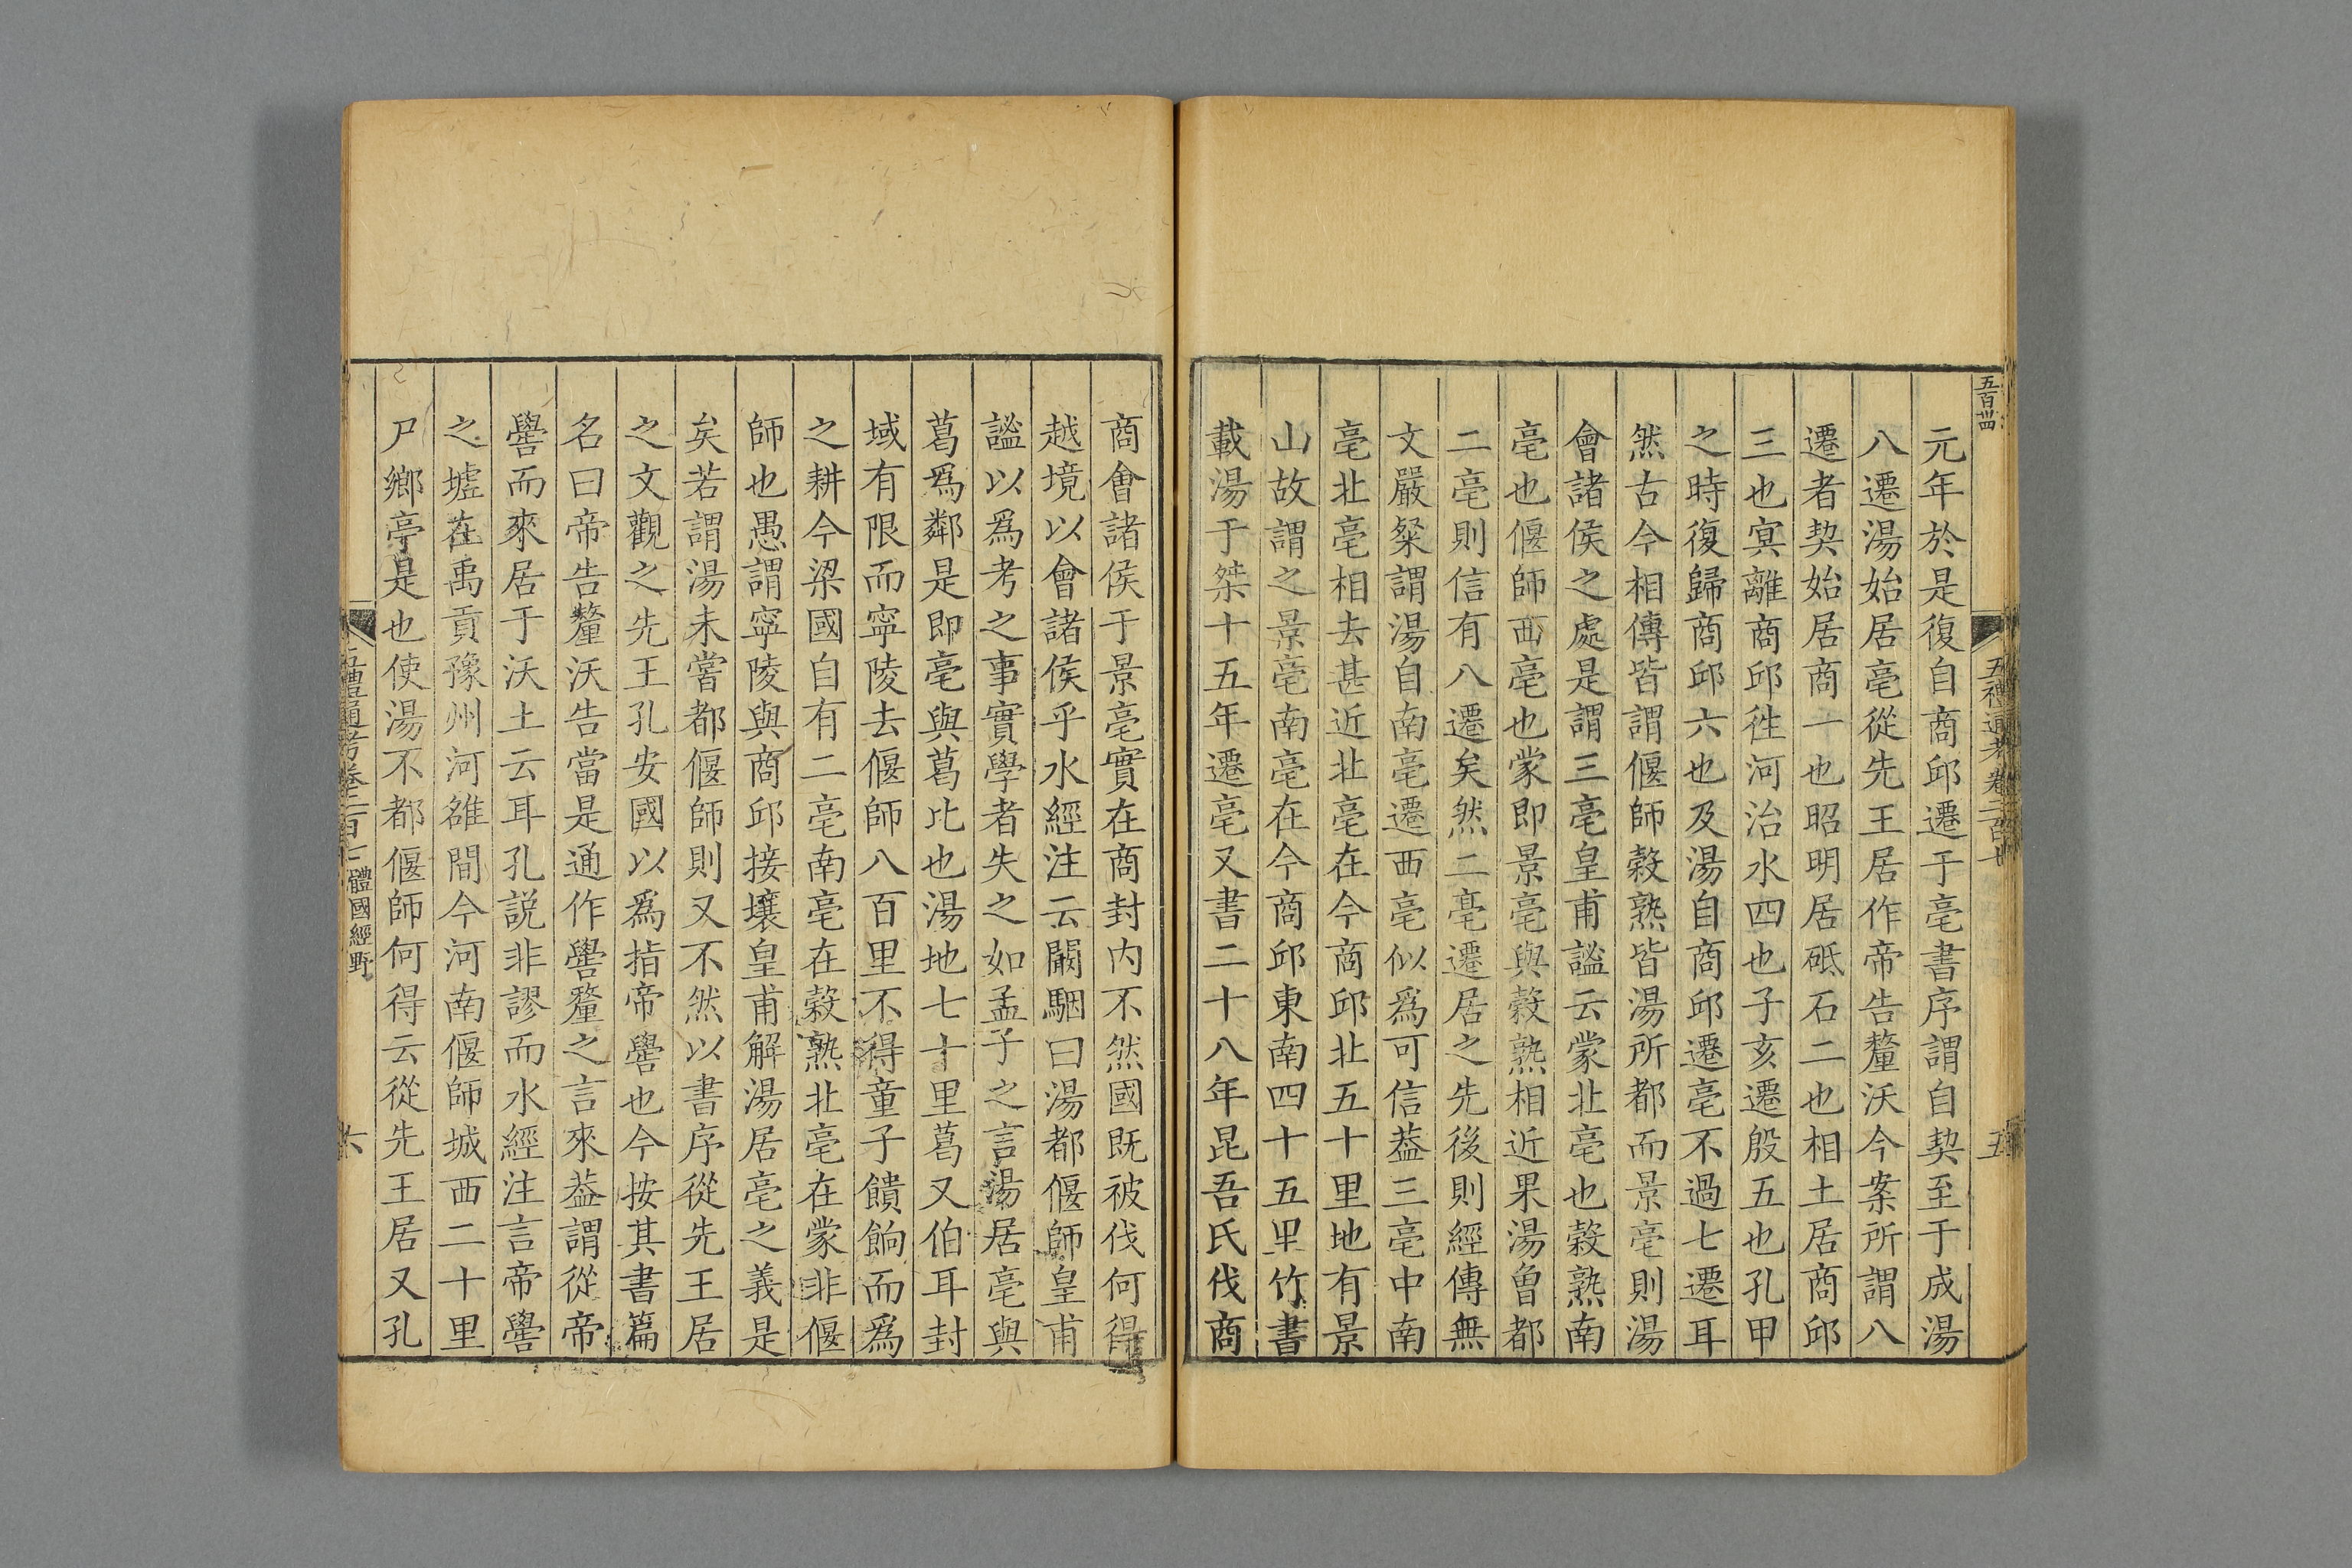 五百卌四
五禮通考卷二百十
五
元年於是復自商邱遷于亳書序謂自契至于成湯
八遷湯始居亳從先王居作帝告釐沃今案所謂八
遷者契始居商一也昭明居砥石二也相土居商邱
三也冥離商邱徃河治水四也子亥遷殷五也孔甲
之時復歸商邱六也及湯自商邱遷亳不過七遷耳
然古今相傳皆謂偃師榖熟皆湯所都而景亳則湯
會諸侯之處是謂三亳皇甫謐云蒙北亳也榖熟南
亳也偃師西亳也蒙即景亳與榖熟相近果湯曾都
二亳則信有八遷矣然二亳遷居之先後則經傳無
文嚴粲謂湯自南亳遷西亳似爲可信葢三亳中南
亳北亳相去甚近北亳在今商邱北五十里地有景
山故謂之景亳南亳在今商邱東南四十五里竹書
載湯于桀十五年遷亳又書二十八年昆吾氏伐商
商會諸侯于景亳實在商封内不然國既被伐何得
越境以會諸侯乎水經注云闞駰曰湯都偃師皇甫
謐以爲考之事實學者失之如孟子之言湯居亳與
葛爲鄰是即亳與葛比也湯地七十里葛又伯耳封
域有限而寧陵去偃師八百里不得童子饋餉而爲
之耕今梁國自有二亳南亳在榖熟北亳在蒙非偃
師也愚謂寧陵與商邱接壤皇甫解湯居亳之義是
矣若謂湯未嘗都偃師則又不然以書序從先王居
之文觀之先王孔安國以爲指帝嚳也今按其書篇
名曰帝告釐沃告當是通作嚳釐之言來葢謂從帝
嚳而來居于沃土云耳孔説非謬而水經注言帝嚳
之墟在禹貢豫州河雒間今河南偃師城西二十里
尸鄉亭是也使湯不都偃師何得云從先王居又孔
五禮通考卷二百十 體國經野
六